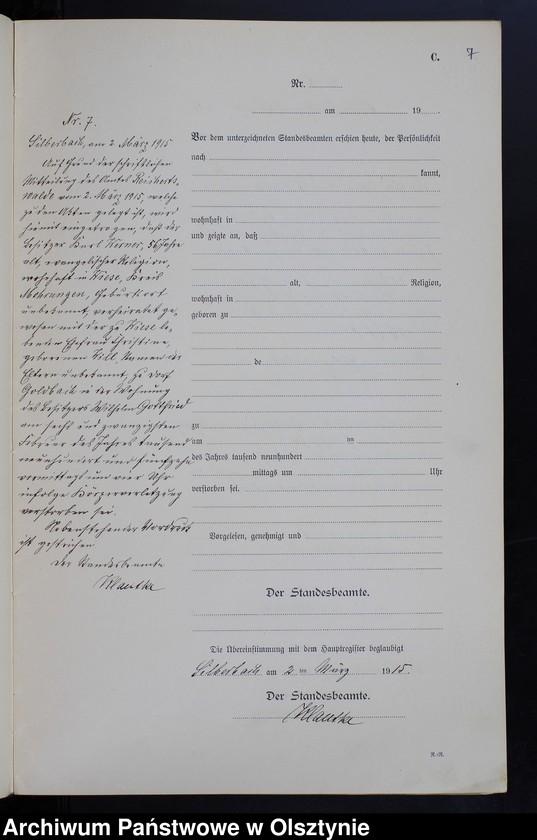 C. 7
Nr.
am 19
Nr. 7.
Silberbach, am 2. März 1915
Auf Grund der schriftlichen
Mitteilung des Amtes Reicherts-
walde vom 2. März 1915, welche
zu den Akten gelegt ist, wird
hiermit eingetragen, daß der
Besitzer Karl Werner, 56 Jahre
alt, evangelischer Religion,
wohnhaft in Wiese, Kreis
Mohrungen, Geburtsort
unbekannt, verheiratet ge-
wesen mit der zu Wiese le-
benden Ehefrau Christine,
geborenen Till, Namen der
Eltern unbekannt, zu Dorf
Goldbach in der Wohnung
des Besitzers Wilhelm Gottfried
am sechs und zwanzigsten
Februar des Jahres tausend
neunhundert und fünfzehn
vormittags um vier Uhr
infolge Körperverletzung
verstorben sei.
Nebenstehender Vordruck
ist gestrichen
Der Standesbeamte
Vor dem unterzeichneten Standesbeamten erschien heute, der Persönlichkeit
nach
kannt,
wohnhaft in
und zeigte an, daß
alt, Religion,
wohnhaft in
geboren zu
de
zu
am ten
des Jahres tausend neunhundert
mittags um Uhr
verstorben sei.
Vorgelesen, genehmigt und
Der Standesbeamte.
Die Übereinstimmung mit dem Hauptregister beglaubigt
Silberbach am 2 ten März 1915.
Der Standesbeamte.
R.-R.
Archiwum Państwowe w Olsztynie